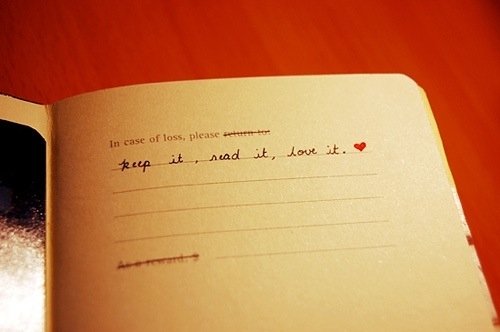 In case of loss, please return to:
keep it, read it, love it.
As a reward: $